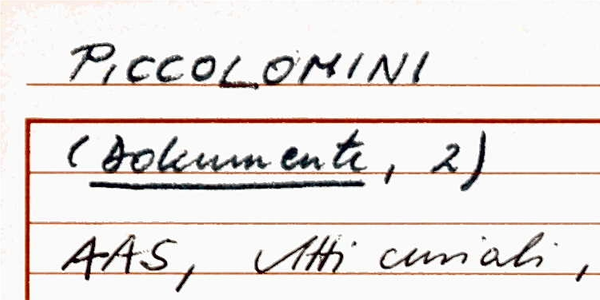 PICCOLOMINI
(Dokumente, 2)
AAS, Atti curiali,